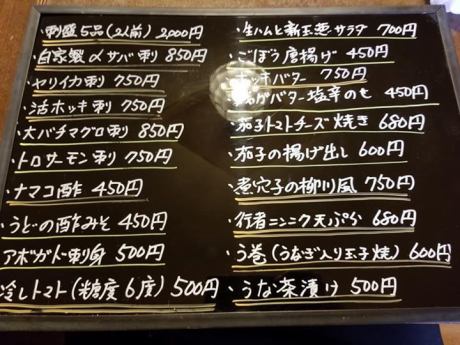 ・刺盛5品(2人前) 2,000円
・自家製〆サバ刺 850円
・ヤリイカ刺 750円
・活ホッキ刺 750円
・大バチマグロ刺 850円
・トロサーモン刺 750円
・ナマコ酢 450円
・うどの酢みそ 450円
アボガド刺身 500円
冷しトマト(糖度6度) 500円
・生ハムと新玉葱サラダ 700円
・ごぼう唐揚げ 450円
ホッキバター 750円
バター塩辛のせ 450円
・茄子トマトチーズ焼き 680円
・茄子の揚げ出し 600円
・煮穴子の柳川風 750円
・行者ニンニク天ぷら 680円
・う巻(うなぎ入り玉子焼) 600円
・うな茶漬け 500円